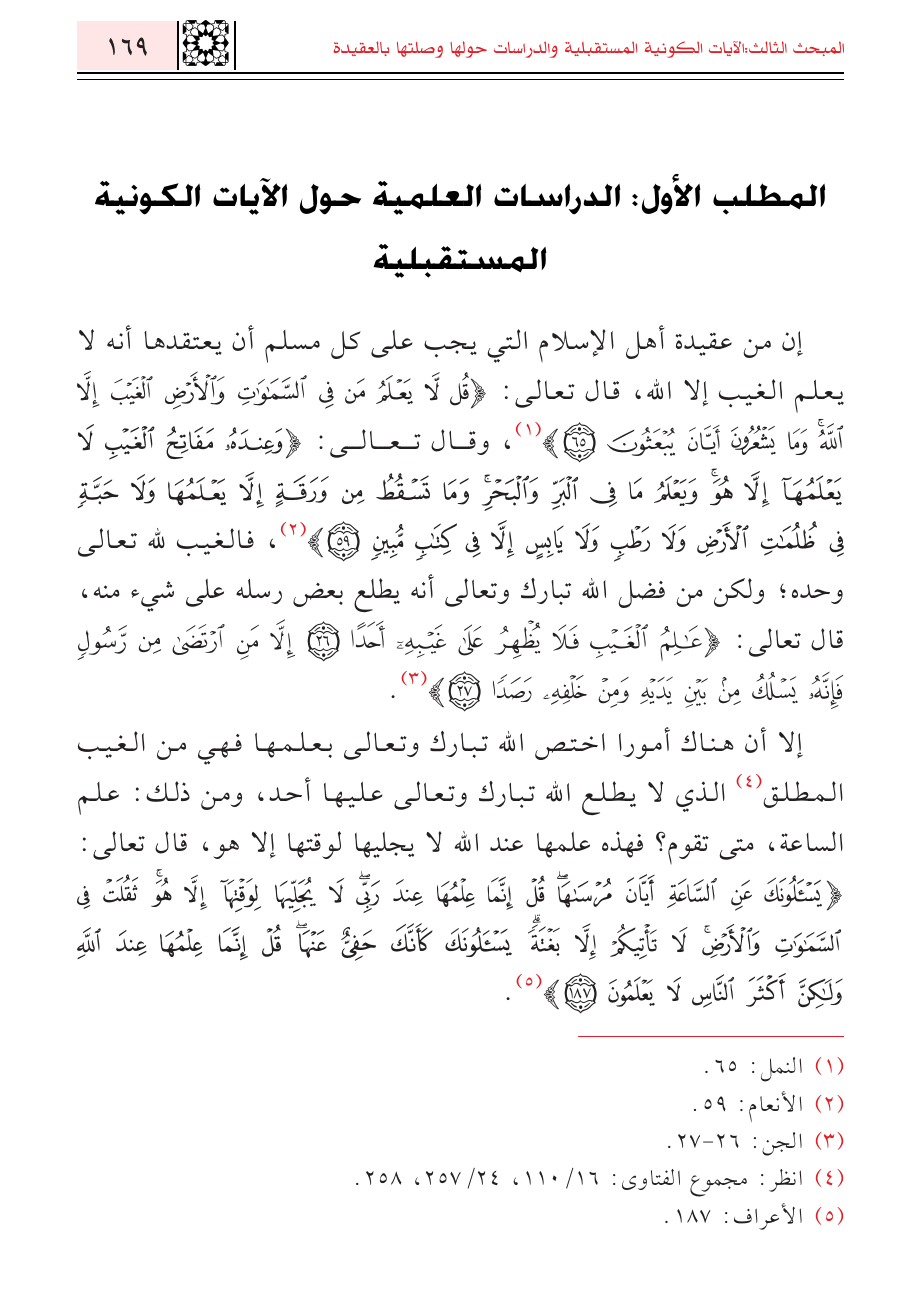 المبحث الثالث:الآيات الكونية المستقبلية والدراسات حولها وصلتها بالعقيدة
١٦٩
المطلب الأول: الدراسات العلمية حول الآيات الكونية
المستقبلية
إن من عقيدة أهل الإسلام التي يجب على كل مسلم أن يعتقدها أنه لا
يعلم الغيب إلا الله، قال تعالى: ﴿قُل لَّا يَعْلَمُ مَن فِي ٱلسَّمَٰوَٰتِ وَٱلْأَرْضِ ٱلْغَيْبَ إِلَّا
ٱللَّهُ ۚ وَمَا يَشْعُرُونَ أَيَّانَ يُبْعَثُونَ ٦٥﴾(١)، وقال تعالى: ﴿وَعِندَهُۥ مَفَاتِحُ ٱلْغَيْبِ لَا
يَعْلَمُهَآ إِلَّا هُوَ ۚ وَيَعْلَمُ مَا فِي ٱلْبَرِّ وَٱلْبَحْرِ ۚ وَمَا تَسْقُطُ مِن وَرَقَةٍ إِلَّا يَعْلَمُهَا وَلَا حَبَّةٍ
فِي ظُلُمَٰتِ ٱلْأَرْضِ وَلَا رَطْبٍ وَلَا يَابِسٍ إِلَّا فِي كِتَٰبٍ مُّبِينٍ ٥٩﴾(٢)، فالغيب لله تعالى
وحده؛ ولكن من فضل الله تبارك وتعالى أنه يطلع بعض رسله على شيء منه،
قال تعالى: ﴿عَٰلِمُ ٱلْغَيْبِ فَلَا يُظْهِرُ عَلَىٰ غَيْبِهِۦٓ أَحَدًا ٢٦ إِلَّا مَنِ ٱرْتَضَىٰ مِن رَّسُولٍ
فَإِنَّهُۥ يَسْلُكُ مِنۢ بَيْنِ يَدَيْهِ وَمِنْ خَلْفِهِۦ رَصَدًا ٢٧﴾(٣).
إلا أن هناك أمورا اختص الله تبارك وتعالى بعلمها فهي من الغيب
المطلق(٤) الذي لا يطلع الله تبارك وتعالى عليها أحد، ومن ذلك: علم
الساعة، متى تقوم؟ فهذه علمها عند الله لا يجليها لوقتها إلا هو، قال تعالى:
﴿يَسْـَٔلُونَكَ عَنِ ٱلسَّاعَةِ أَيَّانَ مُرْسَىٰهَا ۖ قُلْ إِنَّمَا عِلْمُهَا عِندَ رَبِّي ۖ لَا يُجَلِّيهَا لِوَقْتِهَآ إِلَّا هُوَ ۚ ثَقُلَتْ فِي
ٱلسَّمَٰوَٰتِ وَٱلْأَرْضِ ۚ لَا تَأْتِيكُمْ إِلَّا بَغْتَةً ۗ يَسْـَٔلُونَكَ كَأَنَّكَ حَفِيٌّ عَنْهَا ۖ قُلْ إِنَّمَا عِلْمُهَا عِندَ ٱللَّهِ
وَلَٰكِنَّ أَكْثَرَ ٱلنَّاسِ لَا يَعْلَمُونَ ١٨٧﴾(٥).
(١) النمل: ٦٥.
(٢) الأنعام: ٥٩.
(٣) الجن: ٢٦-٢٧.
(٤) انظر: مجموع الفتاوى: ١٦/ ١١٠، ٢٤/ ٢٥٧، ٢٥٨.
(٥) الأعراف: ١٨٧.